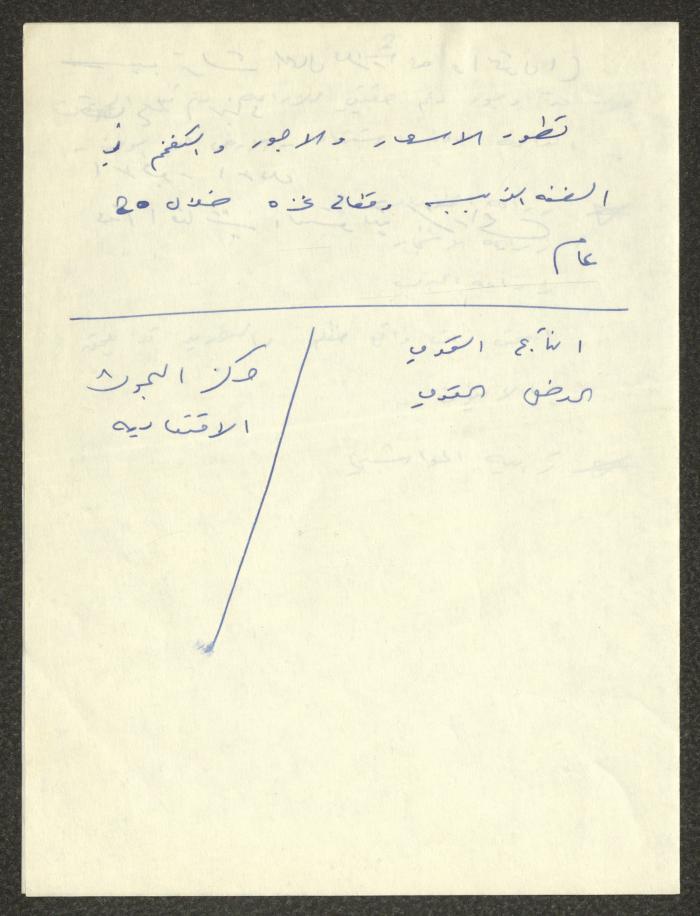 تطور الاسعار والاجور والتضخم في
الضفه الغربيه وقطاع غزه خلال ٢٥
عام
الناتج القومي
الدخل القومي
مركز البحوث
الاقتصاديه